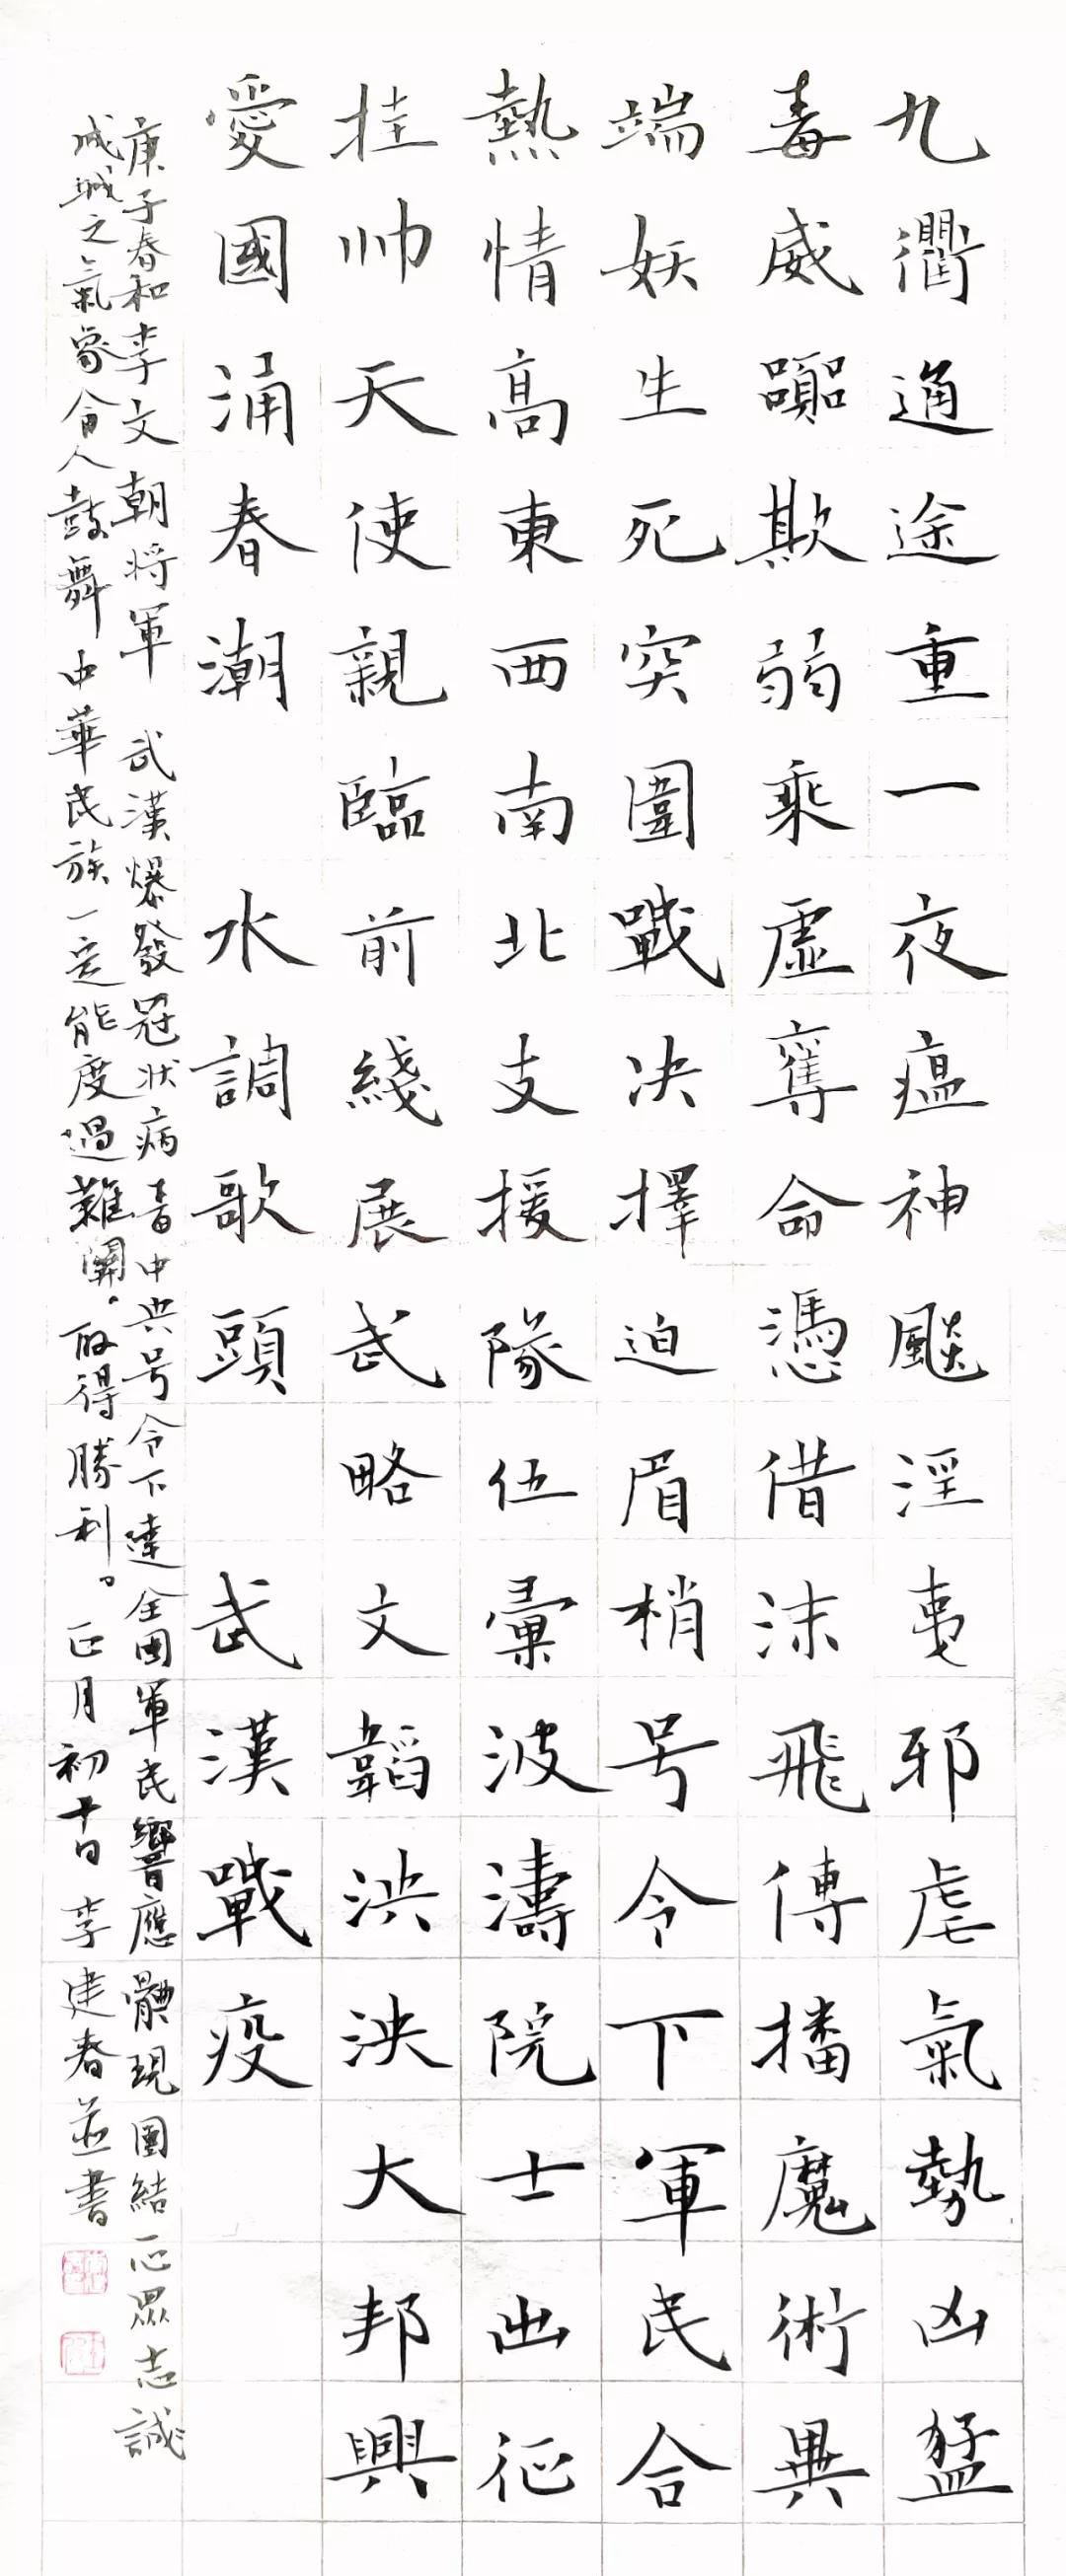 九衢通途重一夜瘟神颷淫夷邪虐氣勢凶猛
毒威躑欺弱乘虛奪命憑借沫飛傳播魔術異
端妖生死突圍戰决擇迫眉梢号令下軍民合
熱情高東西南北支援隊伍彙波濤院士出征
挂帅天使親臨前綫展武略文韜洪泱大邦興
愛國涌春潮 水調歌頭 武漢戰疫
庚子春和李文朝將軍 武漢爆發冠狀病毒中共号令下達全國軍民響應體現團結一心眾志誠
成城之氣象令人鼓舞中華民族一定能度過難關。取得勝利。正月初十日李建春並書